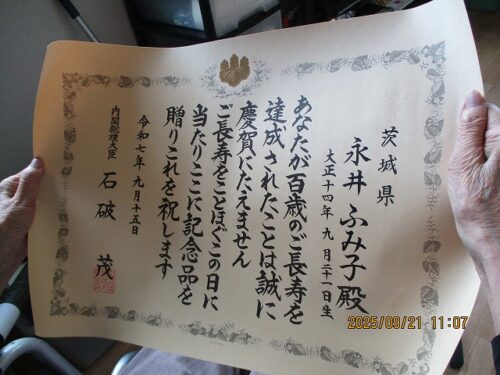 茨城県
永井ふみ子殿
大正十四年九月二十一日生
あなたが百歳のご長寿を
達成されたことは誠に
慶賀にたえません
ご長寿をことほぐこの日に
当たりここに記念品を
贈りこれを祝します
令和七年九月十五日
内閣総理大臣 石破 茂
2025/09/21 11:07